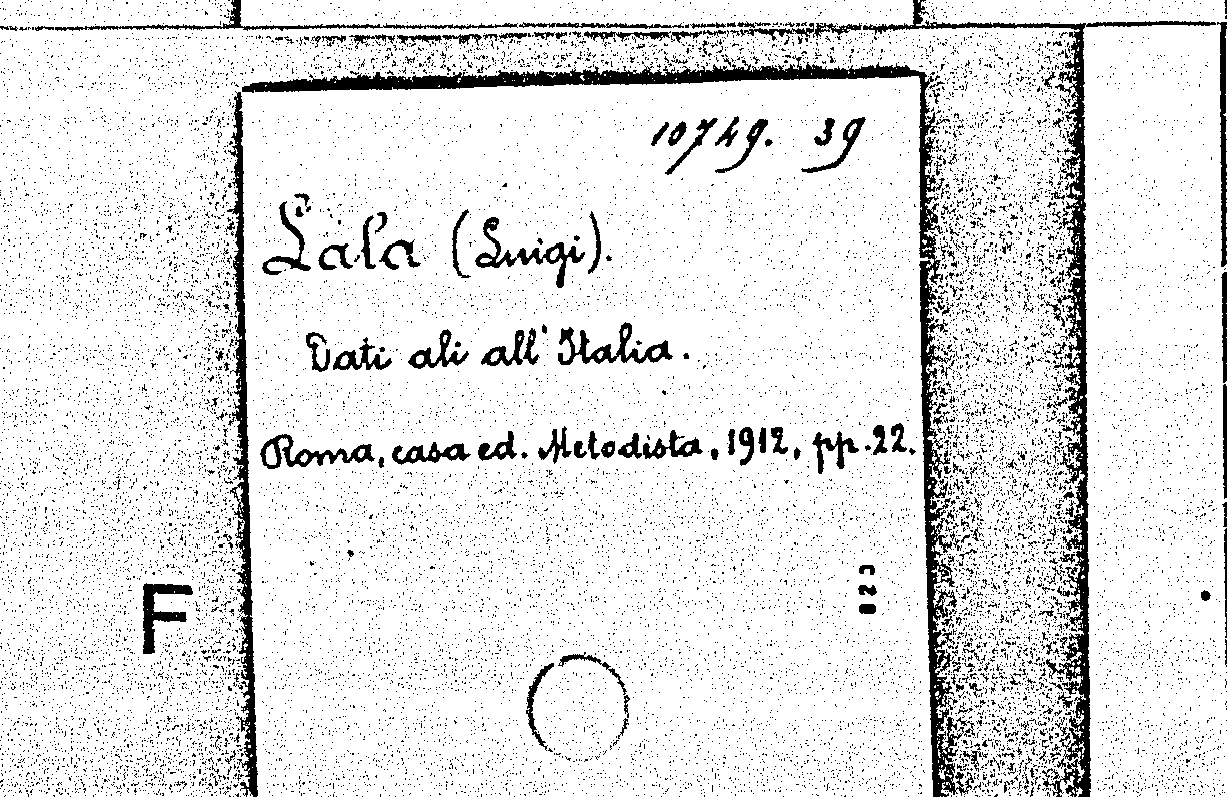 10749. 39
Lala (Luigi).
Dati ali all'Italia.
Roma, casa ed. Metodista, 1912, pp. 22.
F